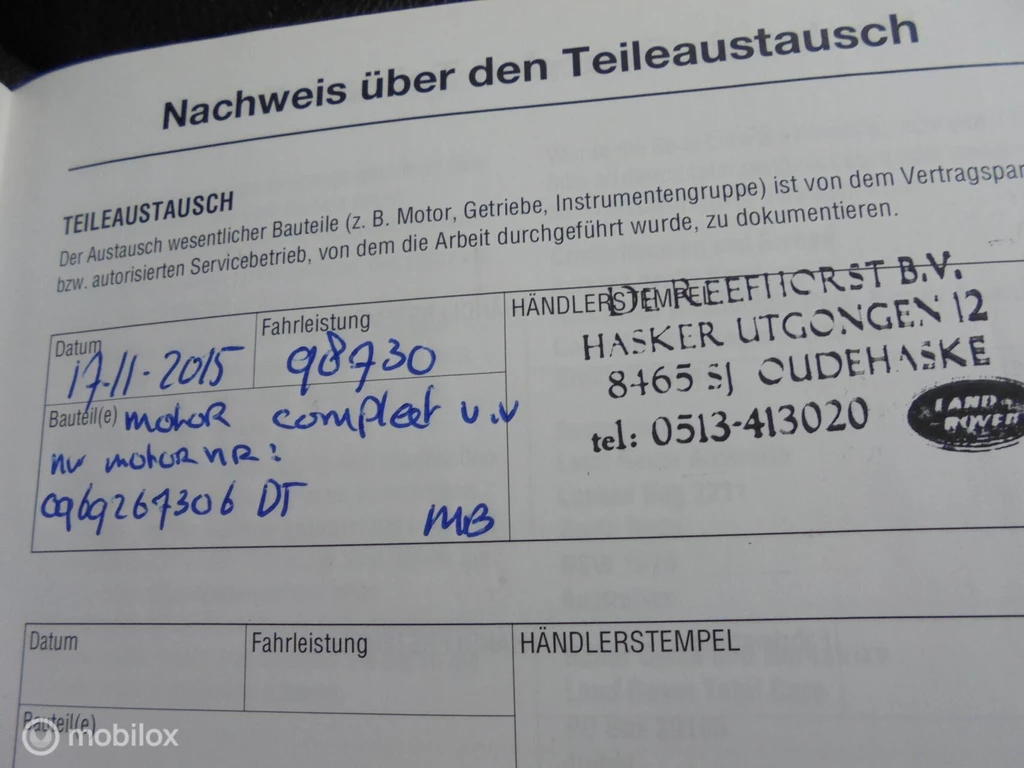 Nachweis über den Teileaustausch
TEILEAUSTAUSCH
Der Austausch wesentlicher Bauteile (z. B. Motor, Getriebe, Instrumentengruppe) ist von dem Vertragspar
bzw. autorisierten Servicebetrieb, von dem die Arbeit durchgeführt wurde, zu dokumentieren.
Datum
17-11-2015
Fahrleistung
98730
Bauteil(e) motor compleet v.v
nw motor nr:
0969267306 DT
MB
HÄNDLERSTEMPEL
DE REEFHORST B.V.
HASKER UTGONGEN 12
8465 SJ OUDEHASKE
tel: 0513-413020
LAND ROVER
Datum
Fahrleistung
HÄNDLERSTEMPEL
Bauteil(e)
mobilox